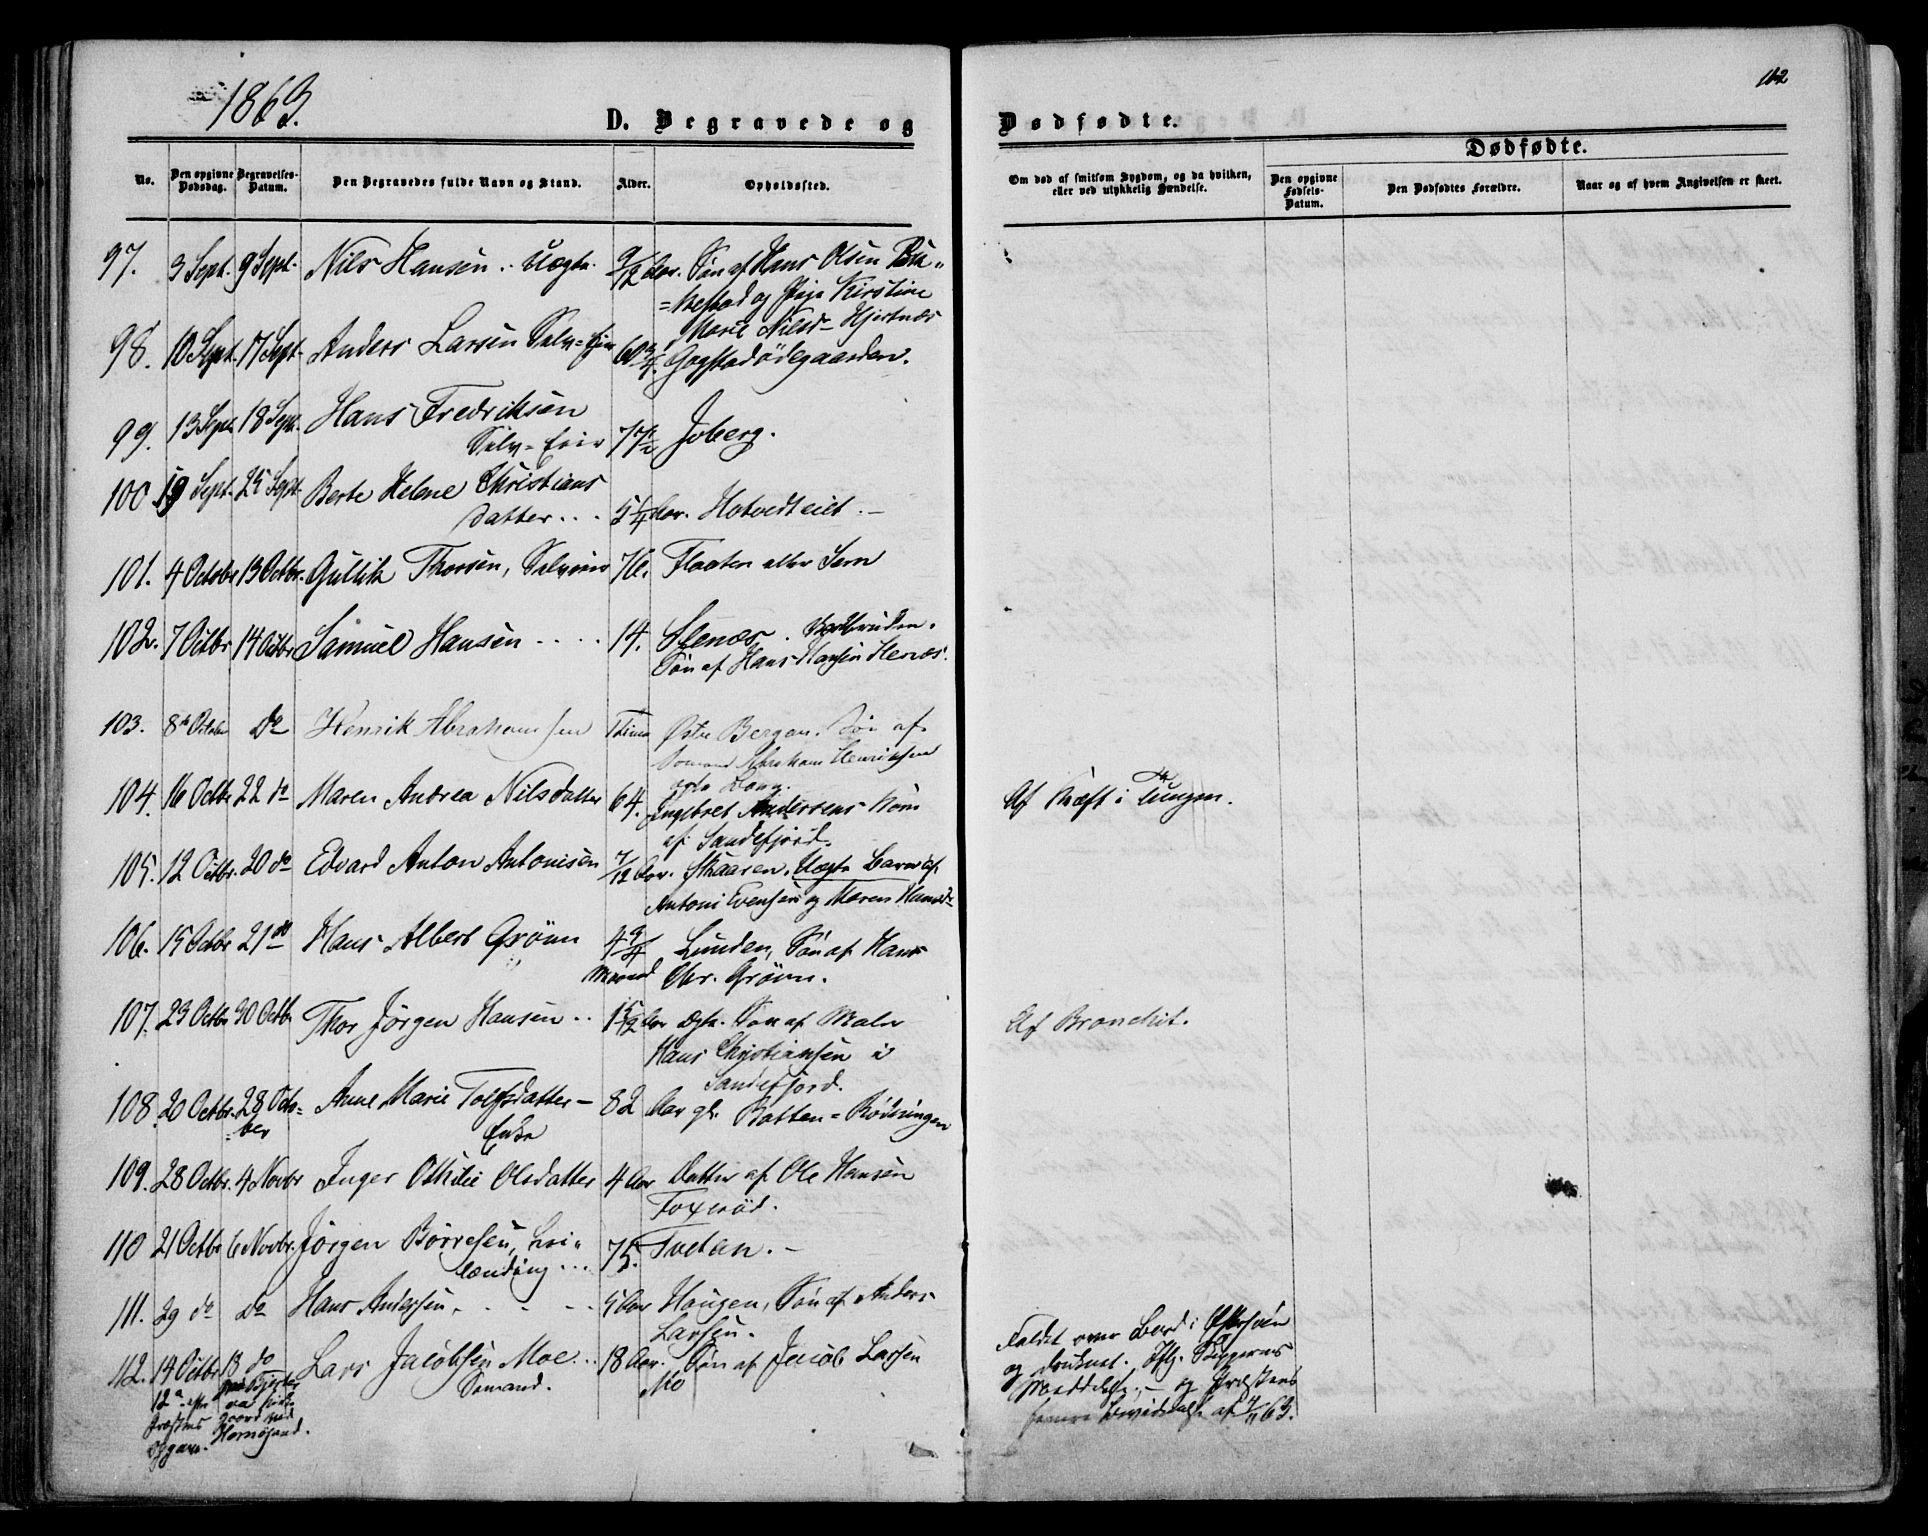 1863.
112
D. Begravede og Dødfødte.
Dødfødte.
No.
Den opgivne Dødsdag.
Begravelses-Datum.
Den Begravedes fulde Navn og Stand.
Alder.
Opholdssted.
Om død af smitsom Sygdom, og da hvilken,
eller ved ulykkelig Hændelse.
Den opgivne Fødsels-Datum.
Den Dødfødtes Forældre.
Naar og af hvem Angivelsen er skeet.
97. 3 Sept. 9 Sept. Nils Hansen .. Uægte. 9/12 Aar. Søn af Hans Olsen
og Pige Kirstine
Marie Nilsd. Hjertnæs
98. 10 Sept. 17 Sept. Anders Larsen Selv=Eier 60 3/4. Gogstadødegaarden.
99. 13 Sept. 18 Sept. Hans Fredriksen
Selv=Eier 77 1/2 Joberg.
100 19 Sept. 25 Sept. Berte Helene Christians
datter... 5 1/4 Aar. Hotvedteiet.-
101. 4 Octobr 13 Octbr. Gullik Thorsen, Selveier 76. Flaaten eller Sem
102. 7 Octbr 14 Octbr Samuel Hansen .... 14.
Søn af Hans Hansen
103. 8de October Do Henrik Abrahamsen Østre Bergan. Søn af
Sømand Abraham Henriksen
104. 16 Octbr 22 do Maren Andrea Nilsdatter 64. Ingebret Andersens Kone
af Sandefjord. Af Kræft i Tungen.
105. 12 Octbr. 20 do Edvard Anton Antonisen 7/12 Aar. Skaaren. Uægte Barn af
Antoni Evensen og Maren Hansd-
106. 15 Octbr 21 do Hans Albert Grønn 4 3/4
Maaned Lunden, Søn af Hans
Chr. Grönn.
107. 23 Octbr 30 Octb Thor Jörgen Hansen .. Aar ægte. Søn af Maler
Hans Christiansen i
Sandefjord. Af Bronchit.
108. 20 Octbr. 28 Octo=
=ber Anne Marie Tolfsdatter-
Enke 82 Aar gl. Botten=Rödningen
109. 28 Octbr. 4 Novbr Inger Othilie Olsdatter 4 Aar Datter af Ole Hansen
Foxeröd.
110 21 Octbr 6 Novbr. Jörgen Börresen, Ind=
lænding... 75. Tvetan.-
111. 29 do Do Hans Andersen. - - - 5 Aar Haugen, Søn af Anders
Larsen.
112. 14 Octbr 18 do Lars Jacobsen Moe...
Sømand. 18 Aar. Søn af Jacob Larsen
Mo
12te efter
Præstens
Opgave.
Hernösand.
Faldet over Bord i Østersøen
og druknet. Ifly. Skipperens
Meddelelse.- og Præstens
af 4/11 63.